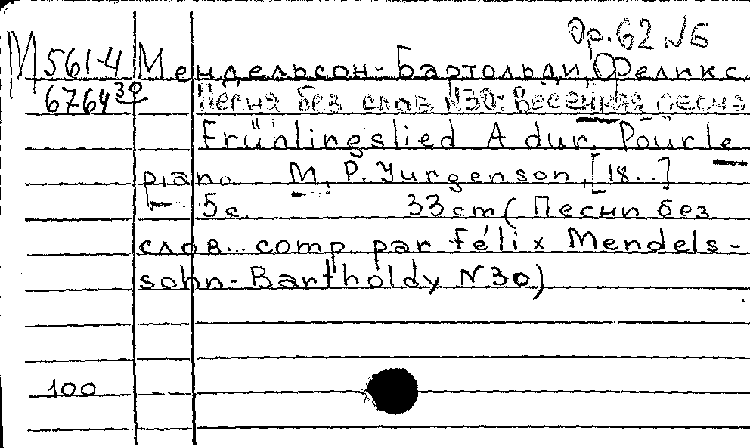 Op. 62 №6
М 561-4 Мендельсон-Бартольди, Феликс.
6764 30 Песня без слов №30: Весенняя песня
Frühlingslied A dur. Pour le
piano. M. P. Jurgenson, [18..]
5 с. 33 cm (Песни без
слов... comp. par Félix Mendels-
sohn-Bartholdy N 30)
100